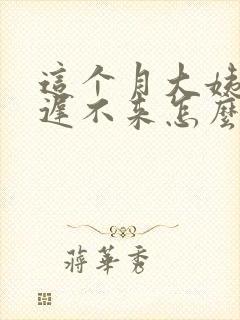 這个月大姨
遲不来怎麼
蔣華秀